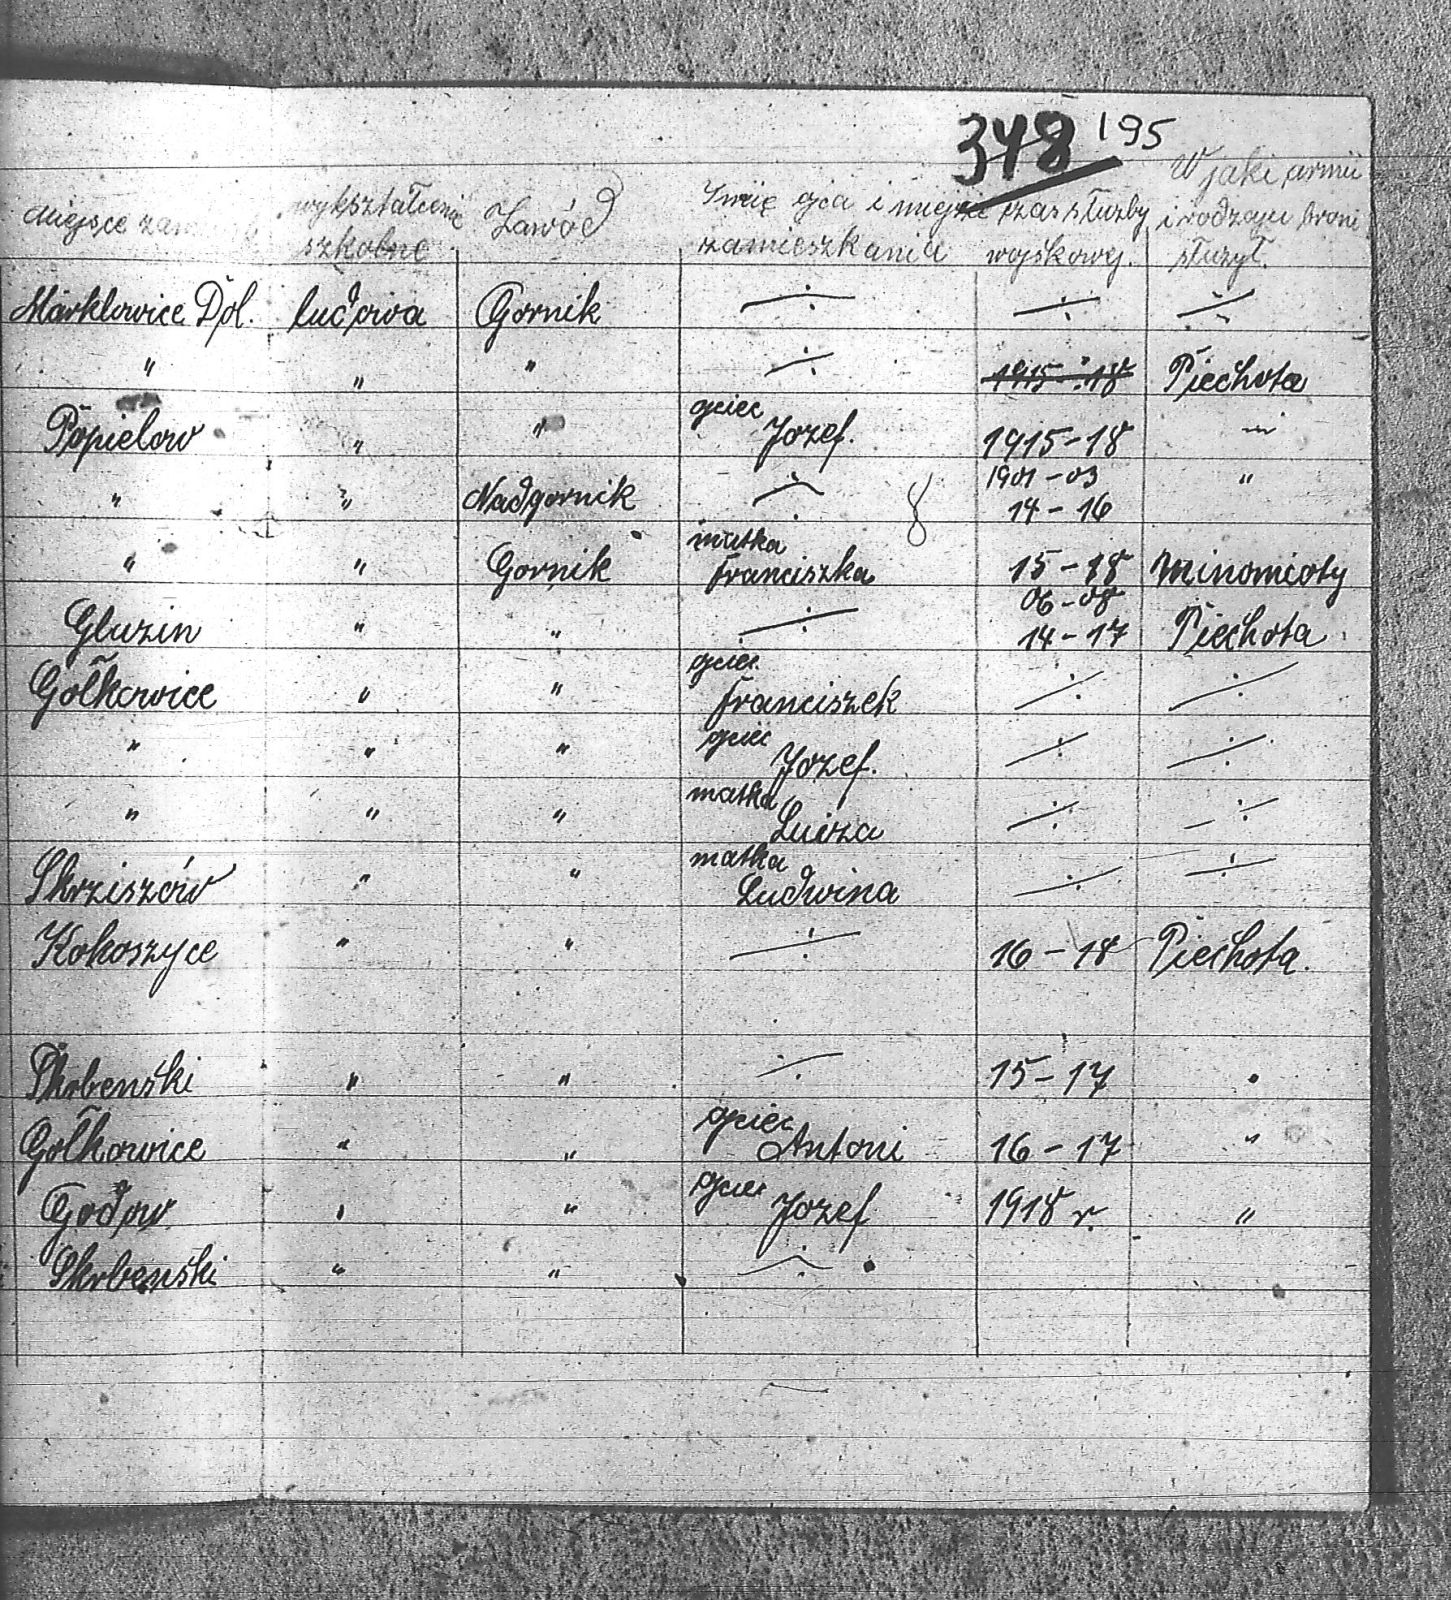 348 195
miejsce wykształcenie Zawód Imię ojca i miejsce czas służby W jaki armii
szkolne zamieszkania wojskowej. i rodzaju broni
służył.
Marklowice Dol. ludowa Gornik ÷ ÷ ÷
" " " ÷ 1915-18 Piechota
Popielow " " ojciec Jozef. 1915-18 "
" " Nadgornik ÷ 1901-03 "
14-16
" " Gornik matka Franciszka 15-18 Minomioty
06-08
Gluzin " " ÷ 14-17 Piechota
Gołkowice " " ojciec Franciszek ÷ ÷
" " " ojciec Jozef. ÷ ÷
" " " matka Luiza ÷ ÷
Skrziszów " " matka Ludwina ÷ ÷
Kokoszyce " " ÷ 16-18 Piechota.
Skrbenski " " ÷ 15-17 "
Gołkowice " " ojciec Antoni 16-17 "
Godow " " ojciec Jozef 1918 r. "
Skrbenski " " ÷